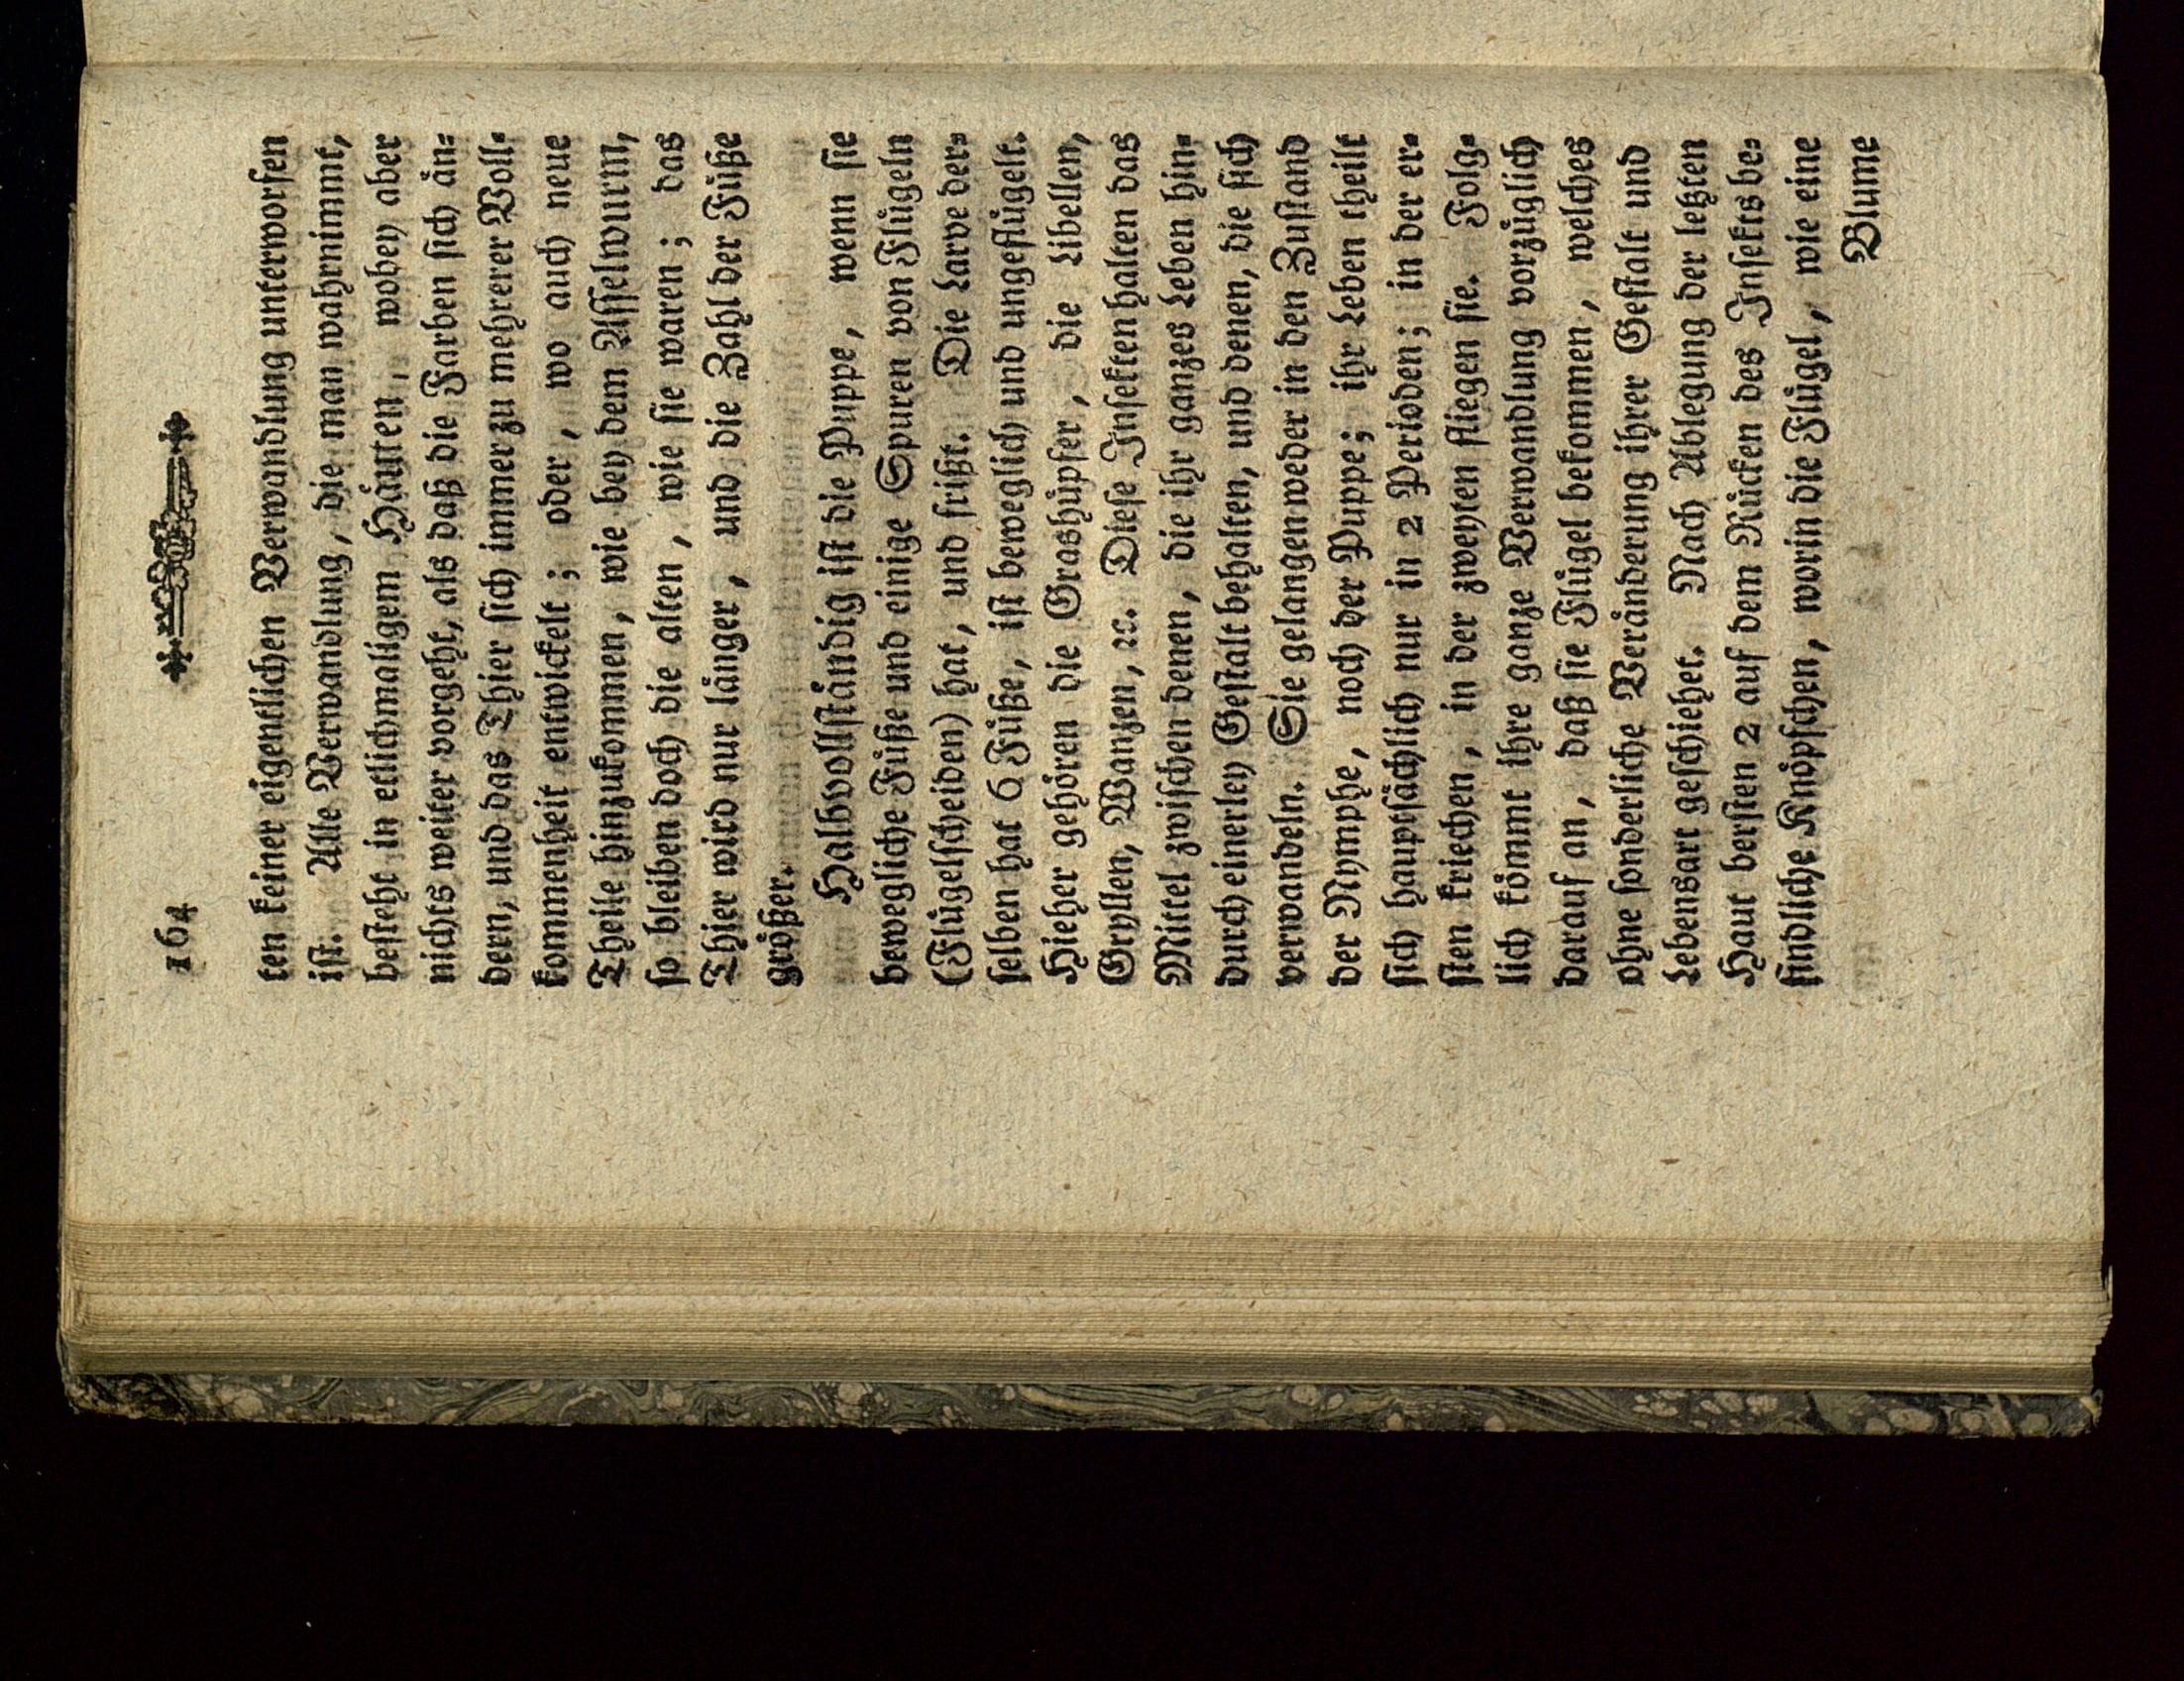 164
ten keiner eigentlichen Verwandlung unterworfen
iſt. Alle Verwandlung, die man wahrnimmt,
beſteht in etlichmaligem Häuten, wobey aber
nichts weiter vorgeht, als daß die Farben ſich än⸗
dern, und das Thier ſich immer zu mehrerer Voll⸗
kommenheit entwickelt; oder, wo auch neue
Theile hinzukommen, wie bey dem Aſſelwurm,
ſo bleiben doch die alten, wie ſie waren; das
Thier wird nur länger, und die Zahl der Füße
größer.
Halbvollſtändig iſt die Puppe, wenn ſie
bewegliche Füße und einige Spuren von Flügeln
(Flügelſcheiden) hat, und frißt. Die Larve der⸗
ſelben hat 6 Füße, iſt beweglich und ungeflügelt.
Hieher gehören die Grashüpfer, die Libellen,
Gryllen, Wanzen, ꝛc. Dieſe Inſekten halten das
Mittel zwiſchen denen, die ihr ganzes Leben hin⸗
durch einerley Geſtalt behalten, und denen, die ſich
verwandeln. Sie gelangen weder in den Zuſtand
der Nymphe, noch der Puppe; ihr Leben theilt
ſich hauptſächlich nur in 2 Perioden; in der er⸗
ſten kriechen, in der zweyten fliegen ſie. Folg⸗
lich kömmt ihre ganze Verwandlung vorzüglich
darauf an, daß ſie Flügel bekommen, welches
ohne ſonderliche Veränderung ihrer Geſtalt und
Lebensart geſchiehet. Nach Ablegung der letzten
Haut berſten 2 auf dem Rücken des Inſekts be⸗
findliche Knöpfchen, worin die Flügel, wie eine
Blume